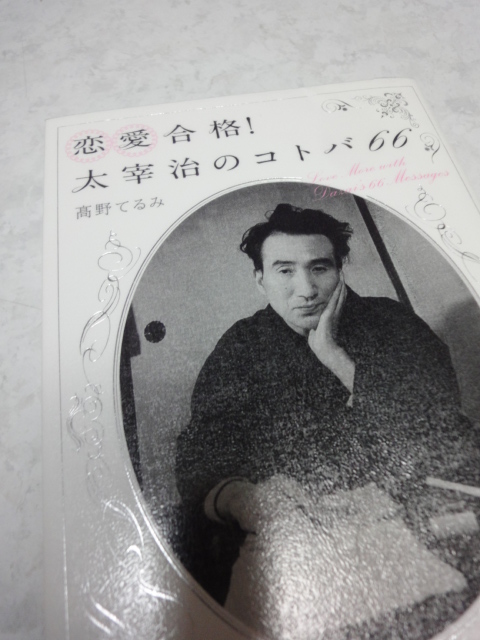 恋愛合格!
太宰治のコトバ66
Love More with
Dazai's 66 Messages
髙野てるみ